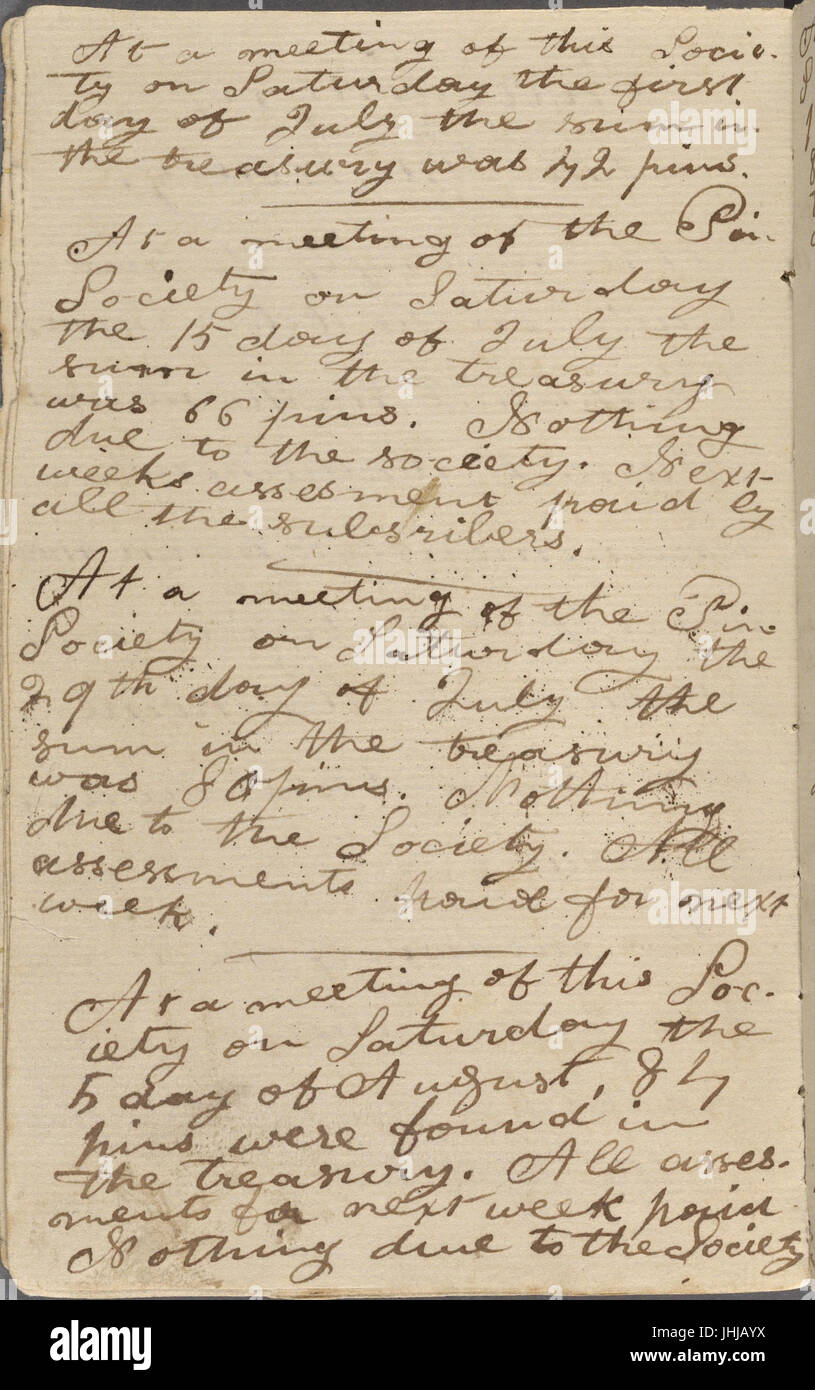 At a meeting of this Socie-
ty on Saturday the first
day of July the sum in
the treasury was 42 pins.
At a meeting of the Pin-
Society on Saturday
the 15 day of July the
sum in the treasury
was 66 pins. Nothing
due to the society. Next
weeks assesment paid by
all the subsribers.
At a meeting of the Pin-
Society on Saturday the
29th day of July the
sum in the treasury
was pins. Nothing
due to the Society. All
assessments paid for next
week.
At a meeting of this Soc-
iety on Saturday the
5 day of August,
pins were found in
the treasury. All asses-
ments for next week paid
Nothing due to the Society
alamy
alamy stock photo
JHJAYX
www.alamy.com